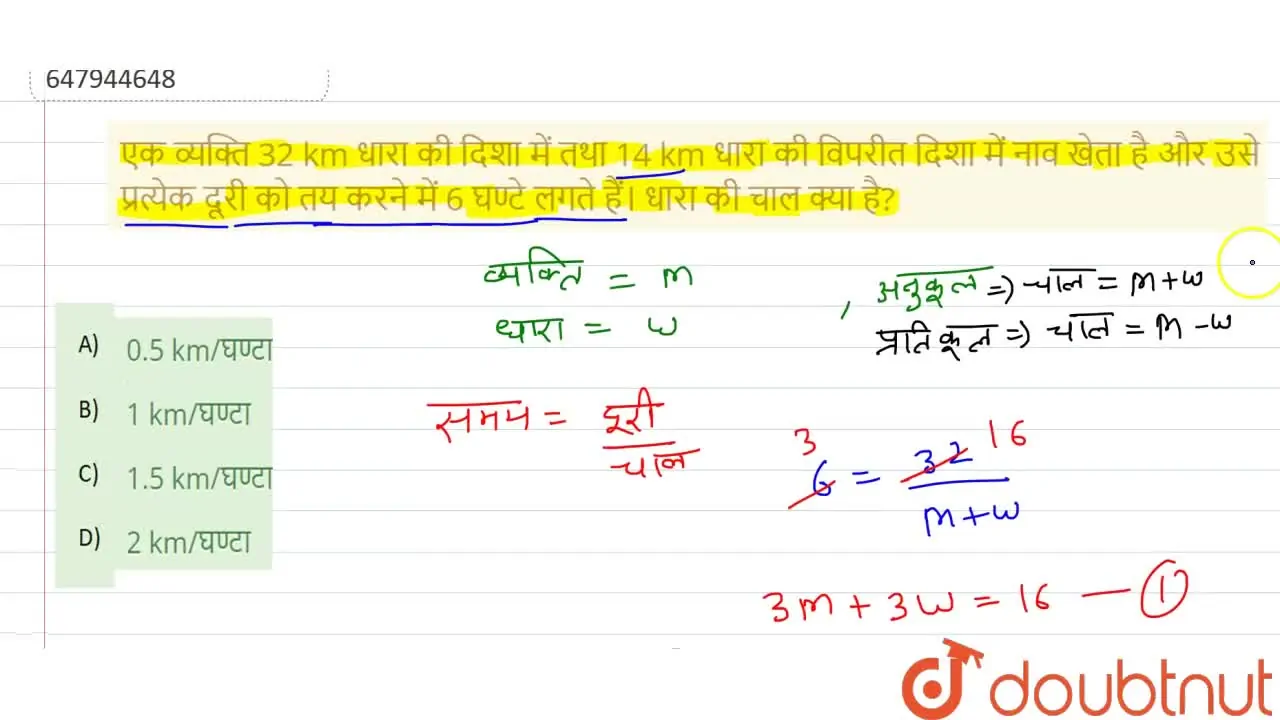 647944648
एक व्यक्ति 32 km धारा की दिशा में तथा 14 km धारा की विपरीत दिशा में नाव खेता है और उसे
प्रत्येक दूरी को तय करने में 6 घण्टे लगते हैं। धारा की चाल क्या है?
व्यक्ति = m
धारा = w
, अनुकूल => चाल = m+w
प्रतिकूल => चाल = m-w
A) 0.5 km/घण्टा
B) 1 km/घण्टा
C) 1.5 km/घण्टा
D) 2 km/घण्टा
समय = दूरी
चाल
3 16
6 = 32
m+w
3m + 3w = 16 — 1
doubtnut